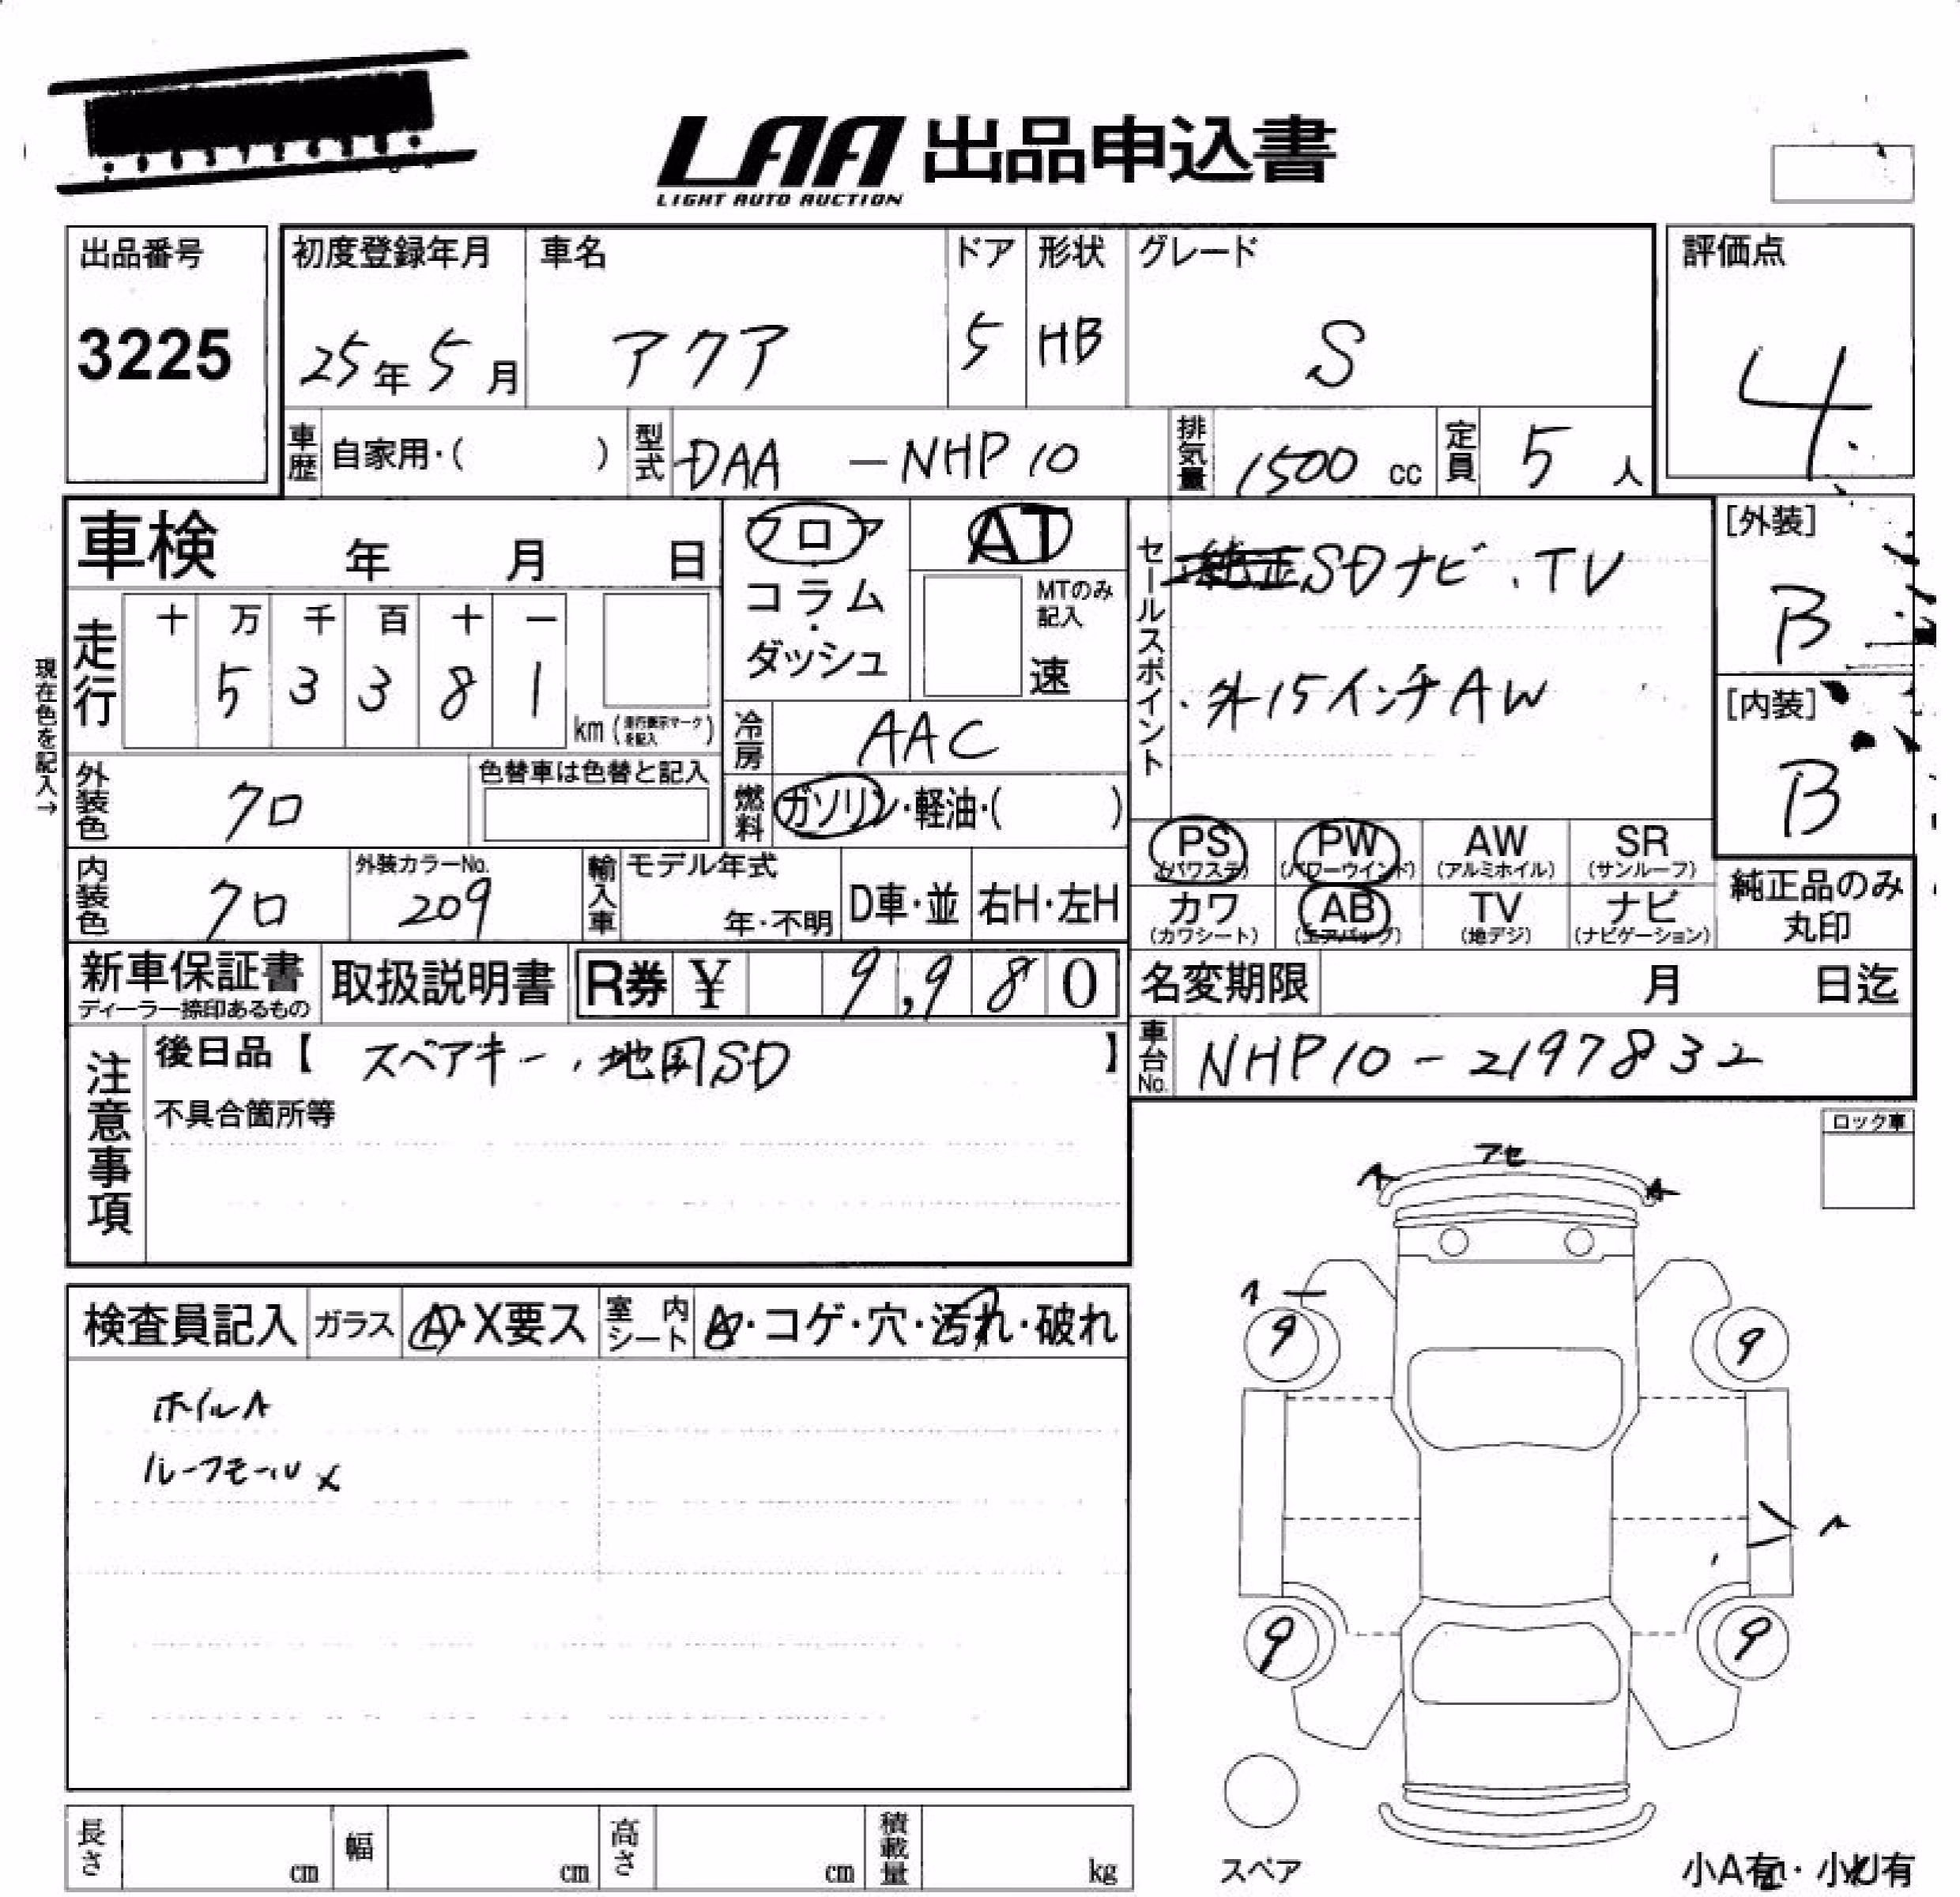 LAA 出品申込書
LIGHT AUTO AUCTION
出品番号
3225
初度登録年月
25年5月
車名
アクア
ドア
5
形状
HB
グレード
S
評価点
4
車歴 自家用・( )
型式 DAA ― NHP10
排気量 1500 cc
定員 5 人
車検 年 月 日
フロア
・
コラム
・
ダッシュ
AT
MTのみ
記入
速
セールスポイント
純正SDナビ、TV
・外15インチAW
[外装]
B
[内装]
B
現在色を記入→
走行
十 万 千 百 十 一
5 3 3 8 1
km (走行表示マークを記入)
冷房 AAC
外装色 クロ
色替車は色替と記入
燃料 ガソリン・軽油・( )
PS (パワステ)
PW (パワーウインド)
AW (アルミホイル)
SR (サンルーフ)
内装色 クロ
外装カラーNo.
209
輸入車
モデル年式
年・不明
D車・並
右H・左H
カワ (カワシート)
AB (エアバッグ)
TV (地デジ)
ナビ (ナビゲーション)
純正品のみ
丸印
新車保証書
ディーラー捺印あるもの
取扱説明書
R券 ¥ 9,980
名変期限 月 日迄
注意事項
後日品【 スペアキー、地図SD 】
車台No. NHP10-2197832
不具合箇所等
ロック車
アセ
A
A
検査員記入
ガラス
A・X要ス
室内シート
A・コゲ・穴・汚れ・破れ
ホイルA
ルーフモール X
9
9
9
9
長さ cm
幅 cm
高さ cm
積載量 kg
スペア
小A有・小U有